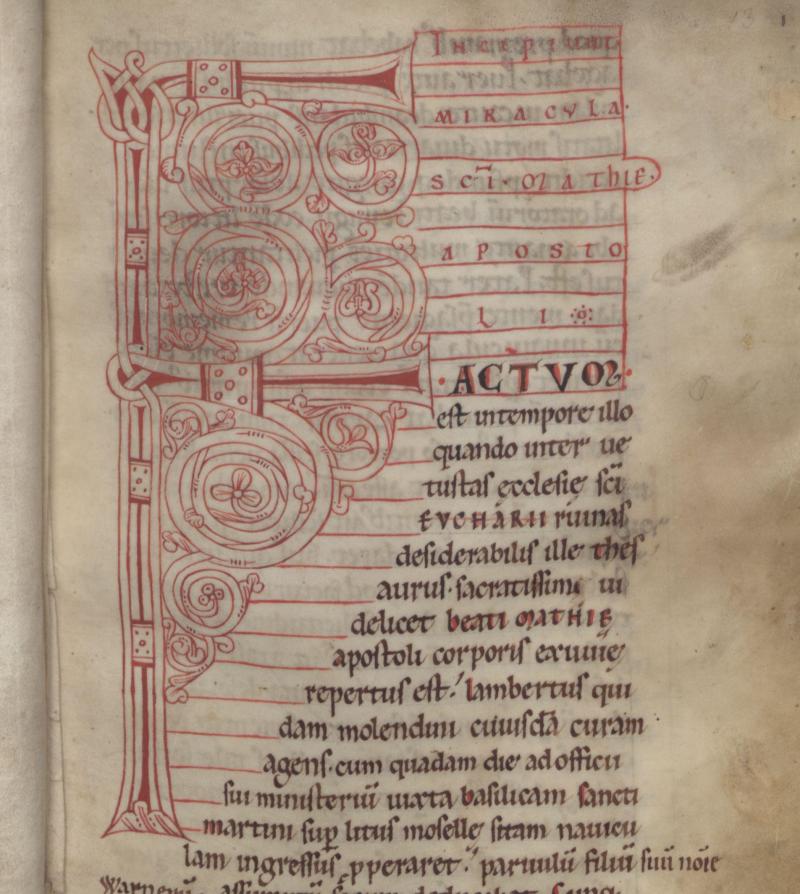 INCIPIUNT
MIRACVLA.
SCĪ. MATHIE.
APOSTO
LI
F ACTVM
est in tempore illo
quando inter ue
tustas ecclesię sci̅
EVCHARII ruinas
desiderabilis ille thes
aurus. sacratissimi ui
delicet beati MATHIĘ
apostoli corporis exuuię
repertus est. lambertus qui
dam molendini cuiusdā curam
agens. cum quadam die ad officii
sui ministeriū iuxta basilicam sancti
martini sup̲ litus moselle sitam nauicu
lam ingressus p̲peraret. paruulū filiū suū noīe
Warnerū